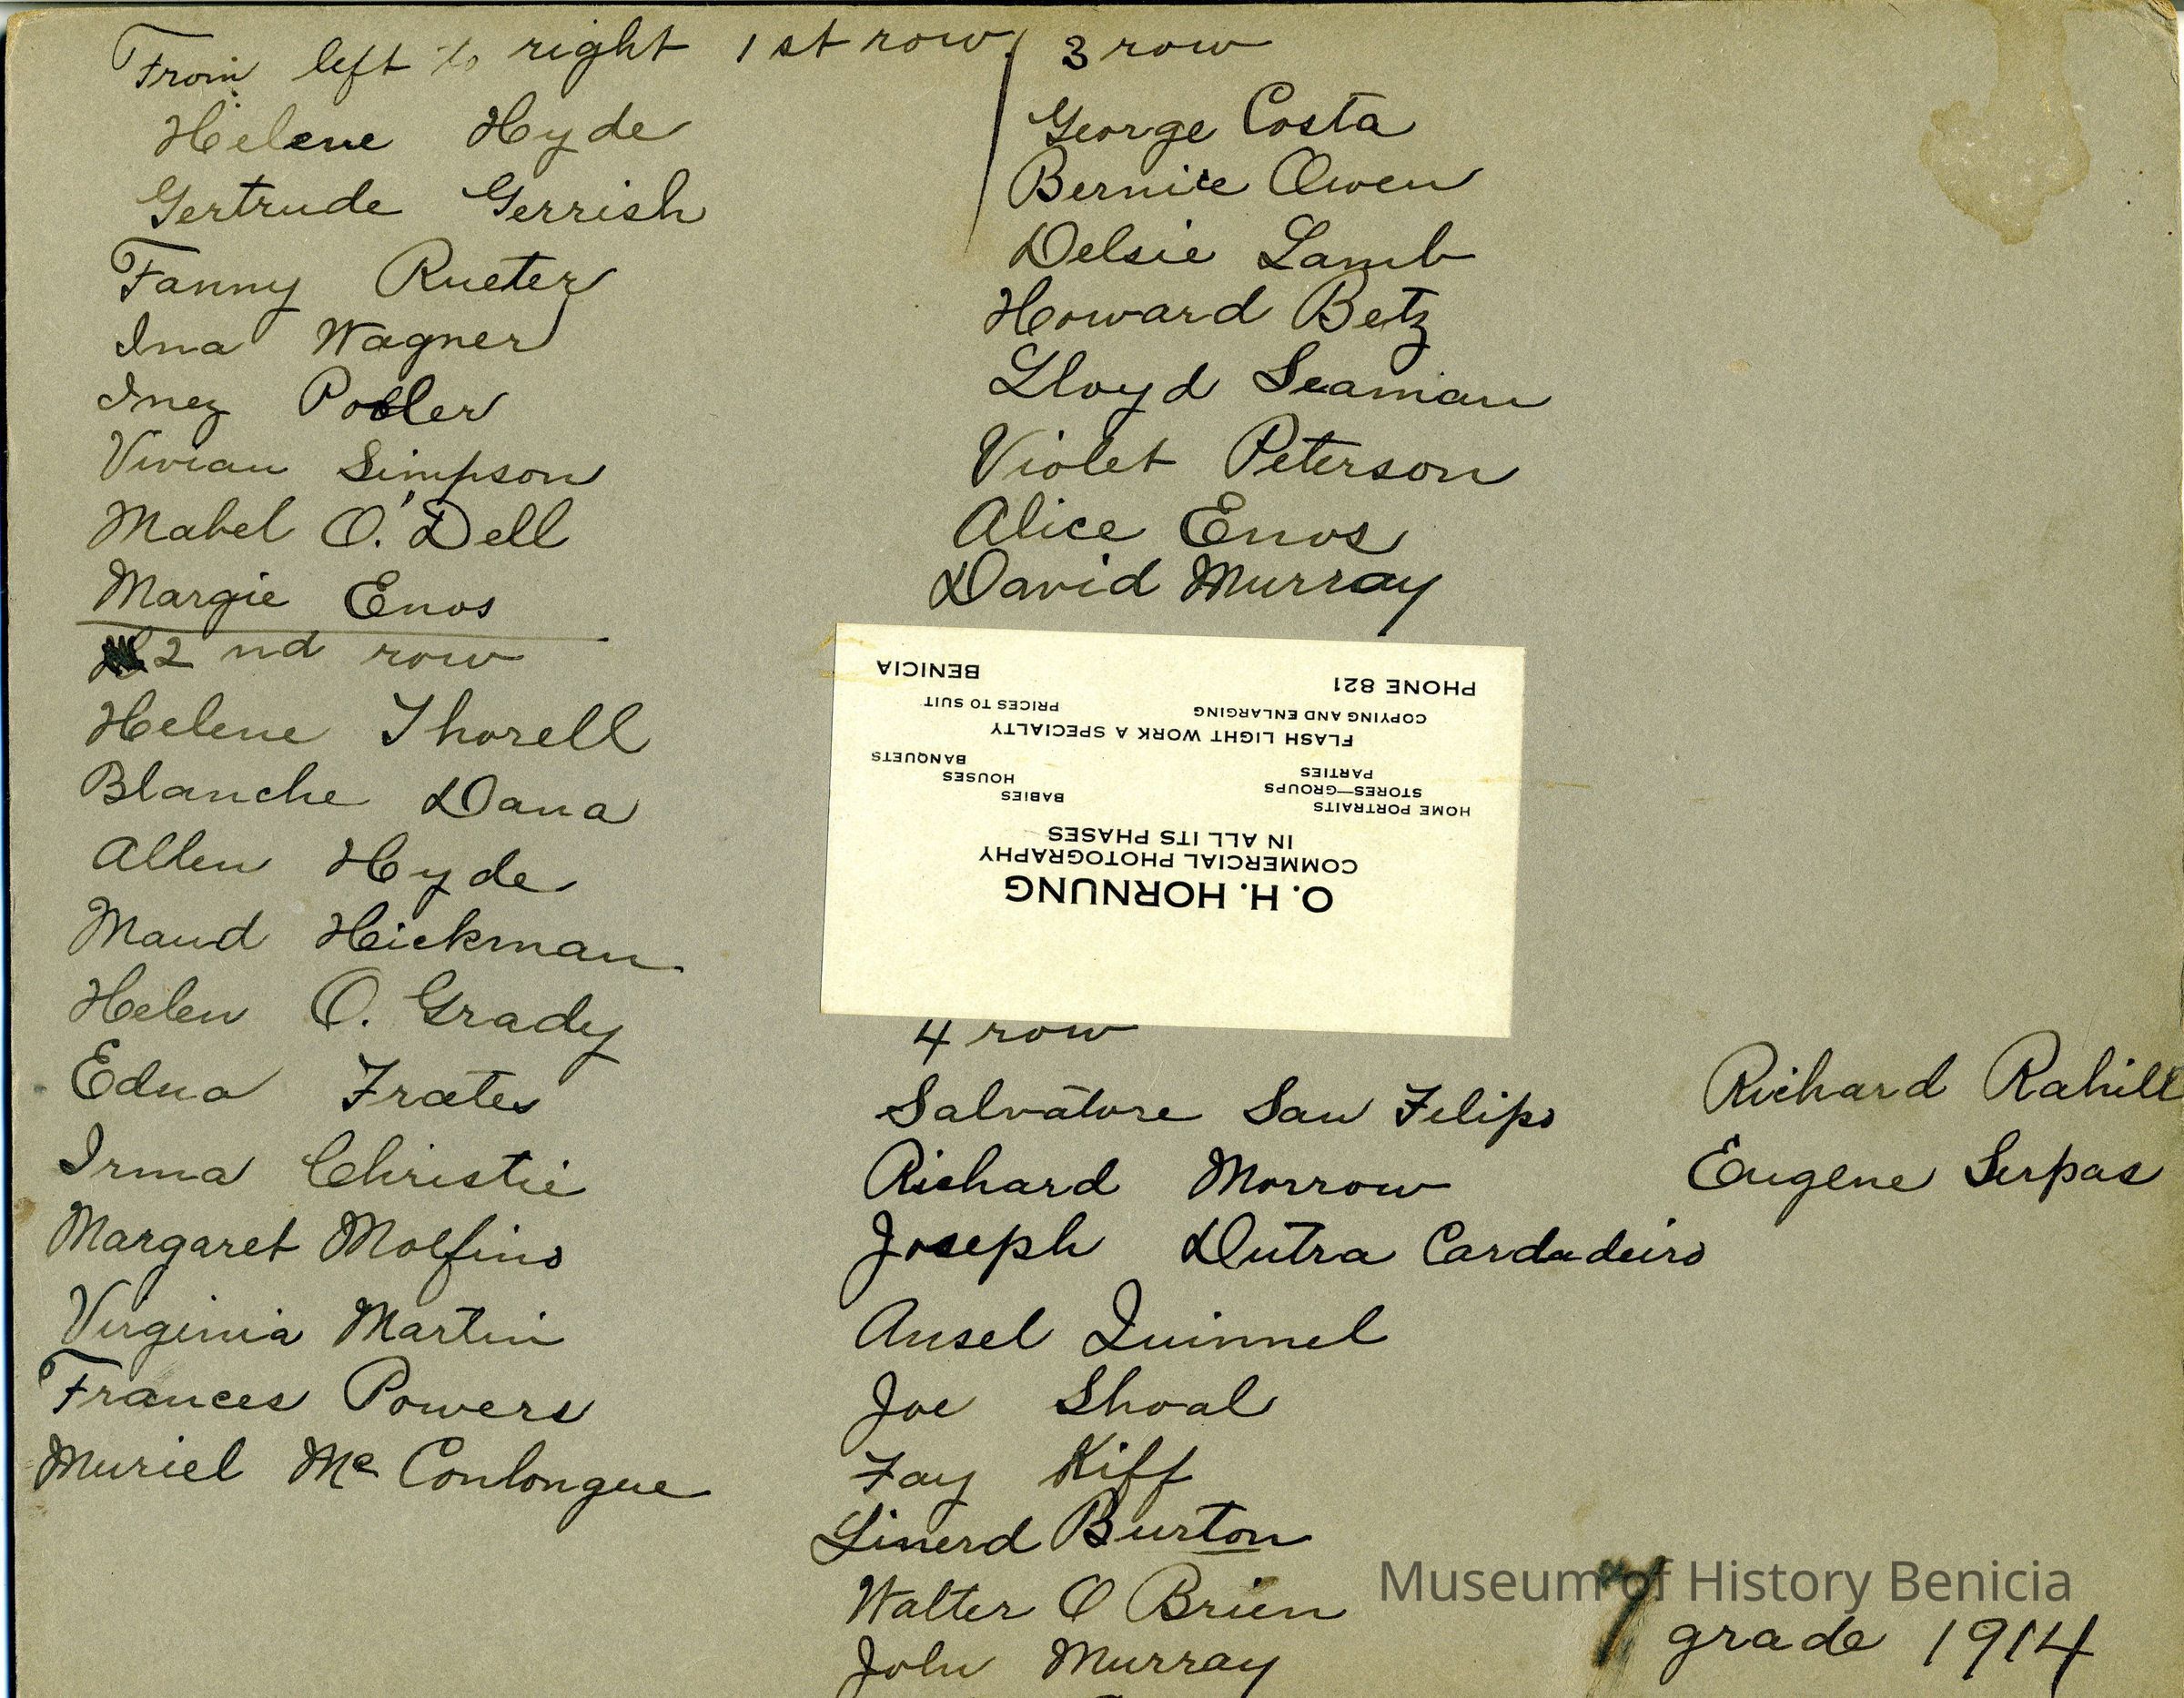 From left to right 1st row
Helene Hyde
Gertrude Gerrish
Fanny Rueter
Ina Wagner
Inez
Vivian Simpson
Mabel O'.Dell
Margie Enos
2nd row
Helene Thorell
Blanche Dana
Allen Hyde
Maud Hickman
Helen O. Grady
Edna Frates
Irma Christie
Margaret Molfino
Virginia Martin
Frances Powers
Muriel Mc Conlongue
3 row
George Costa
Bernice Owen
Delsie Lamb
Howard Betz
Lloyd Seaman
Violet Peterson
Alice Enos
David Murray
O. H. HORNUNG
COMMERCIAL PHOTOGRAPHY
IN ALL ITS PHASES
HOME PORTRAITS BABIES
STORES—GROUPS HOUSES
PARTIES BANQUETS
FLASH LIGHT WORK A SPECIALTY
COPYING AND ENLARGING PRICES TO SUIT
PHONE 821 BENICIA
4 row
Salvatore San Felipo
Richard Morrow
Joseph Dutra Cardadeiro
Ansel Quinnel
Joe Shoal
Fay Kiff
Linerd Burton
Walter O Brien
John Murray
Richard Rahill
Eugene Serpas
Museum of History Benicia
7 grade 1914